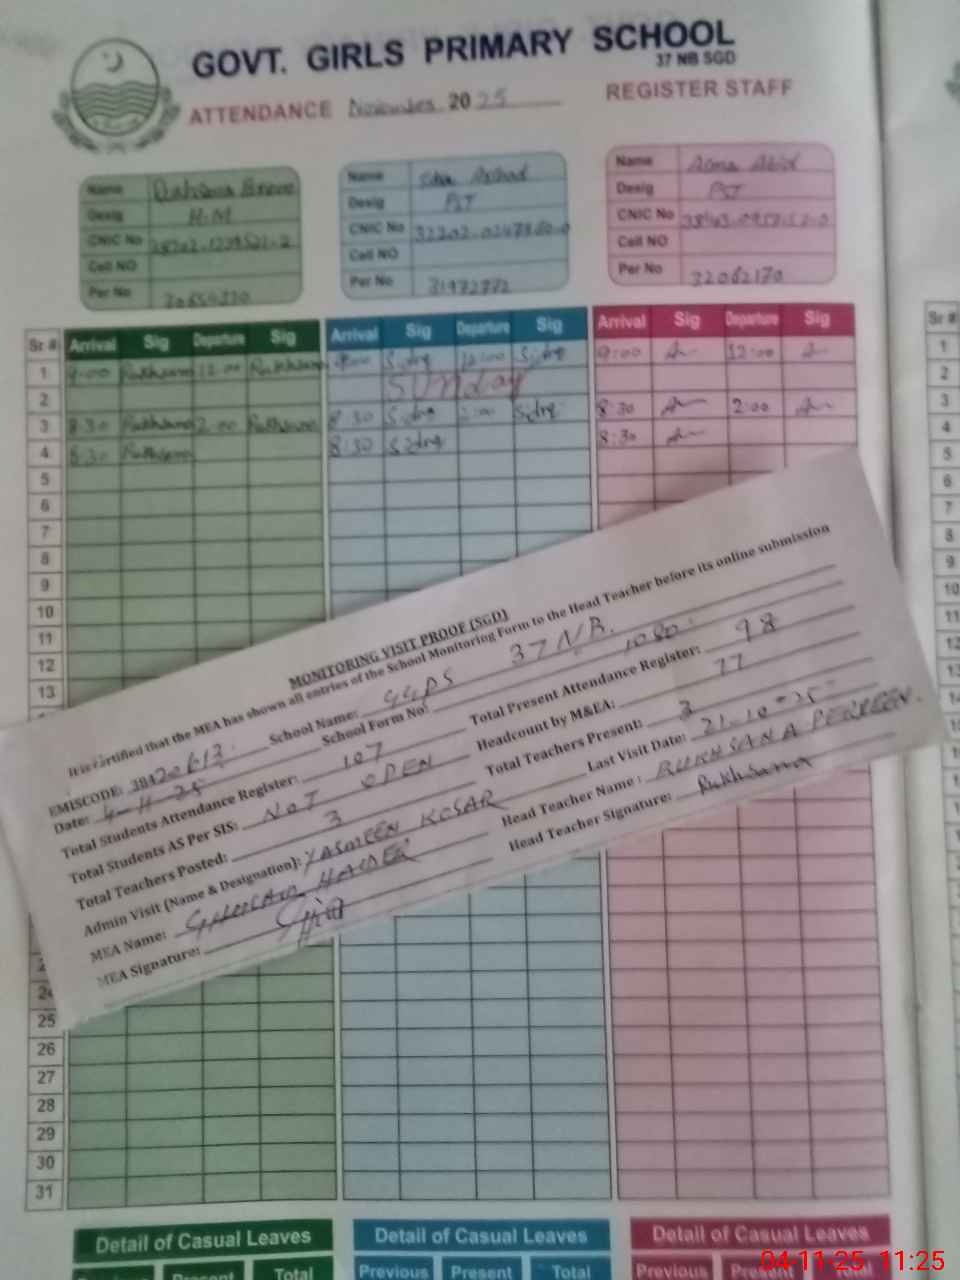 GOVT. GIRLS PRIMARY SCHOOL
37 NB SGD
ATTENDANCE November 2025 REGISTER STAFF
Name
Desig H.M
CNIC No
Cell NO
Per No
Name
Desig PST
CNIC No
Cell NO
Per No
Name Asma Abid
Desig PST
CNIC No
Cell NO
Per No 32062170
Sr # Arrival Sig Departure Sig Arrival Sig Departure Sig Arrival Sig Departure Sig Sr #
1 9:00 Rukhsana 12:00 Rukhsana 9:00 Sidra 12:00 Sidra 9:00 12:00 1
2 SUNday 2
3 8:30 Rukhsana 2:00 Rukhsana 8:30 Sidra 2:00 Sidra 8:30 2:00 3
4 8:30 Rukhsana 8:30 Sidra 8:30 4
5 5
6 6
7 7
8 8
9 9
10 10
11 11
12 12
13 13
MONITORING VISIT PROOF (SGD)
It is Certified that the MEA has shown all entries of the School Monitoring Form to the Head Teacher before its online submission
EMISCODE: 38420613 School Name: GGPS 37 NB.
Date: 4-11-25 School Form No:
Total Students Attendance Register: 107 Total Present Attendance Register: 98
Total Students AS Per SIS: NOT OPEN Headcount by M&EA: 77
Total Teachers Posted: 3 Total Teachers Present: 3
Admin Visit (Name & Designation): YASMEEN KOSAR Last Visit Date: 21-10-25
MEA Name: GHULAM HAIDER Head Teacher Name : RUKHSANA PERVEEN.
MEA Signature: Head Teacher Signature: Rukhsana
24
25
26
27
28
29
30
31
Detail of Casual Leaves Detail of Casual Leaves Detail of Casual Leaves
Previous Present Total Previous Present Total Previous Present Total
04-11-25 11:25